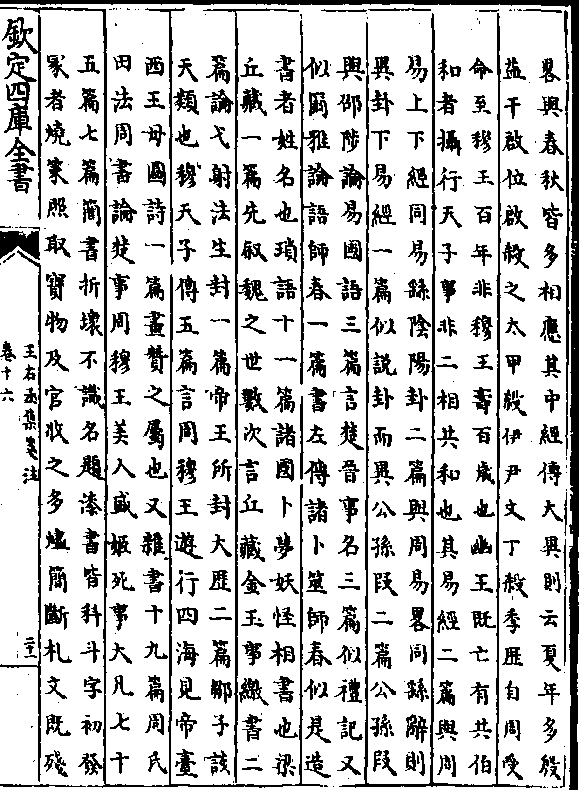 畧與春秋皆多相應其中經傳大異則云夏年多殷
益干啟位啟殺之太甲殺伊尹文丁殺季歷自周受
命至穆王百年非穆王壽百歲也幽王既亡有共伯
和者攝行天子事非二相共和也其易經二篇與周
易上下經同易繇陰陽卦二篇與周易畧同繇辭則
異卦下易經一篇似說卦而異公孫段二篇公孫段
與邵陟論易國語三篇言楚晉事名三篇似禮記又
似爾雅論語師春一篇書左傳諸卜筮師春似是造
書者姓名也瑣語十一篇諸國卜夢妖怪相書也梁
丘藏一篇先叙魏之世數次言丘藏金玉事繳書二
篇論弋射法生封一篇帝王所封大歷二篇鄒子談
天類也穆天子傳五篇言周穆王遊行四海見帝臺
西王母圖詩一篇畫贊之屬也又雜書十九篇周氏
田法周書論楚事周穆王美人盛姬死事大凡七十
五篇七篇簡書折壞不識名題漆書皆科斗字初發
冢者燒策照取寶物及官收之多燼簡斷札文既殘
欽定四庫全書
王右丞集箋注
卷十六